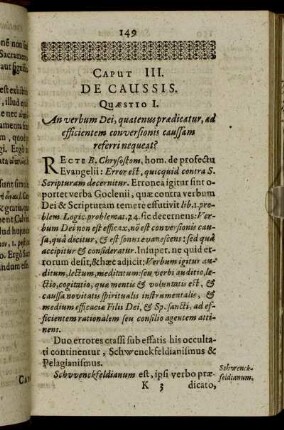 149
CAPUT III.
DE CAUSSIS.
QUÆSTIO I.
An verbum Dei, quatenus prædicatur, ad
efficientem conversionis caussam
referri nequeat?
RECTE B. Chrysostom. hom. de profectu
Evangelii: Error est, quicquid contra S.
Scripturam decernitur. Erronea igitur sint o-
portet verba Goclenii, quæ contra verbum
Dei & Scripturam temere effutivit lib. 2. pro-
blem. Logic. problemat. 24. sic decernens: Ver-
bum Dei non est efficax, nõ est conversionis caus-
sa, quâ dicitur, & est sonus evanescens: sed quâ
accipitur & consideratur. Insuper, ne quid er-
rorum desit, hæc adjicit: Verbum igitur au-
ditum, lectum, meditatum seu verbi auditio, le-
ctio, cogitatio, quæ mentis & voluntatis est, &
caussa novitatis spiritualis instrumentalis, &
medium efficacia Filii Dei, & Sp. sancti, ad ef-
ficientem rationalem seu consilio agentem atti-
nent.
Duo errores crassi sub effatis his occulta-
ti continentur, Schwenckfeldianismus &
Pelagianismus.
Schwenckfeldianum est, ipsi verbo præ-
Schwenck-
feldianum.
K 3 dicato,